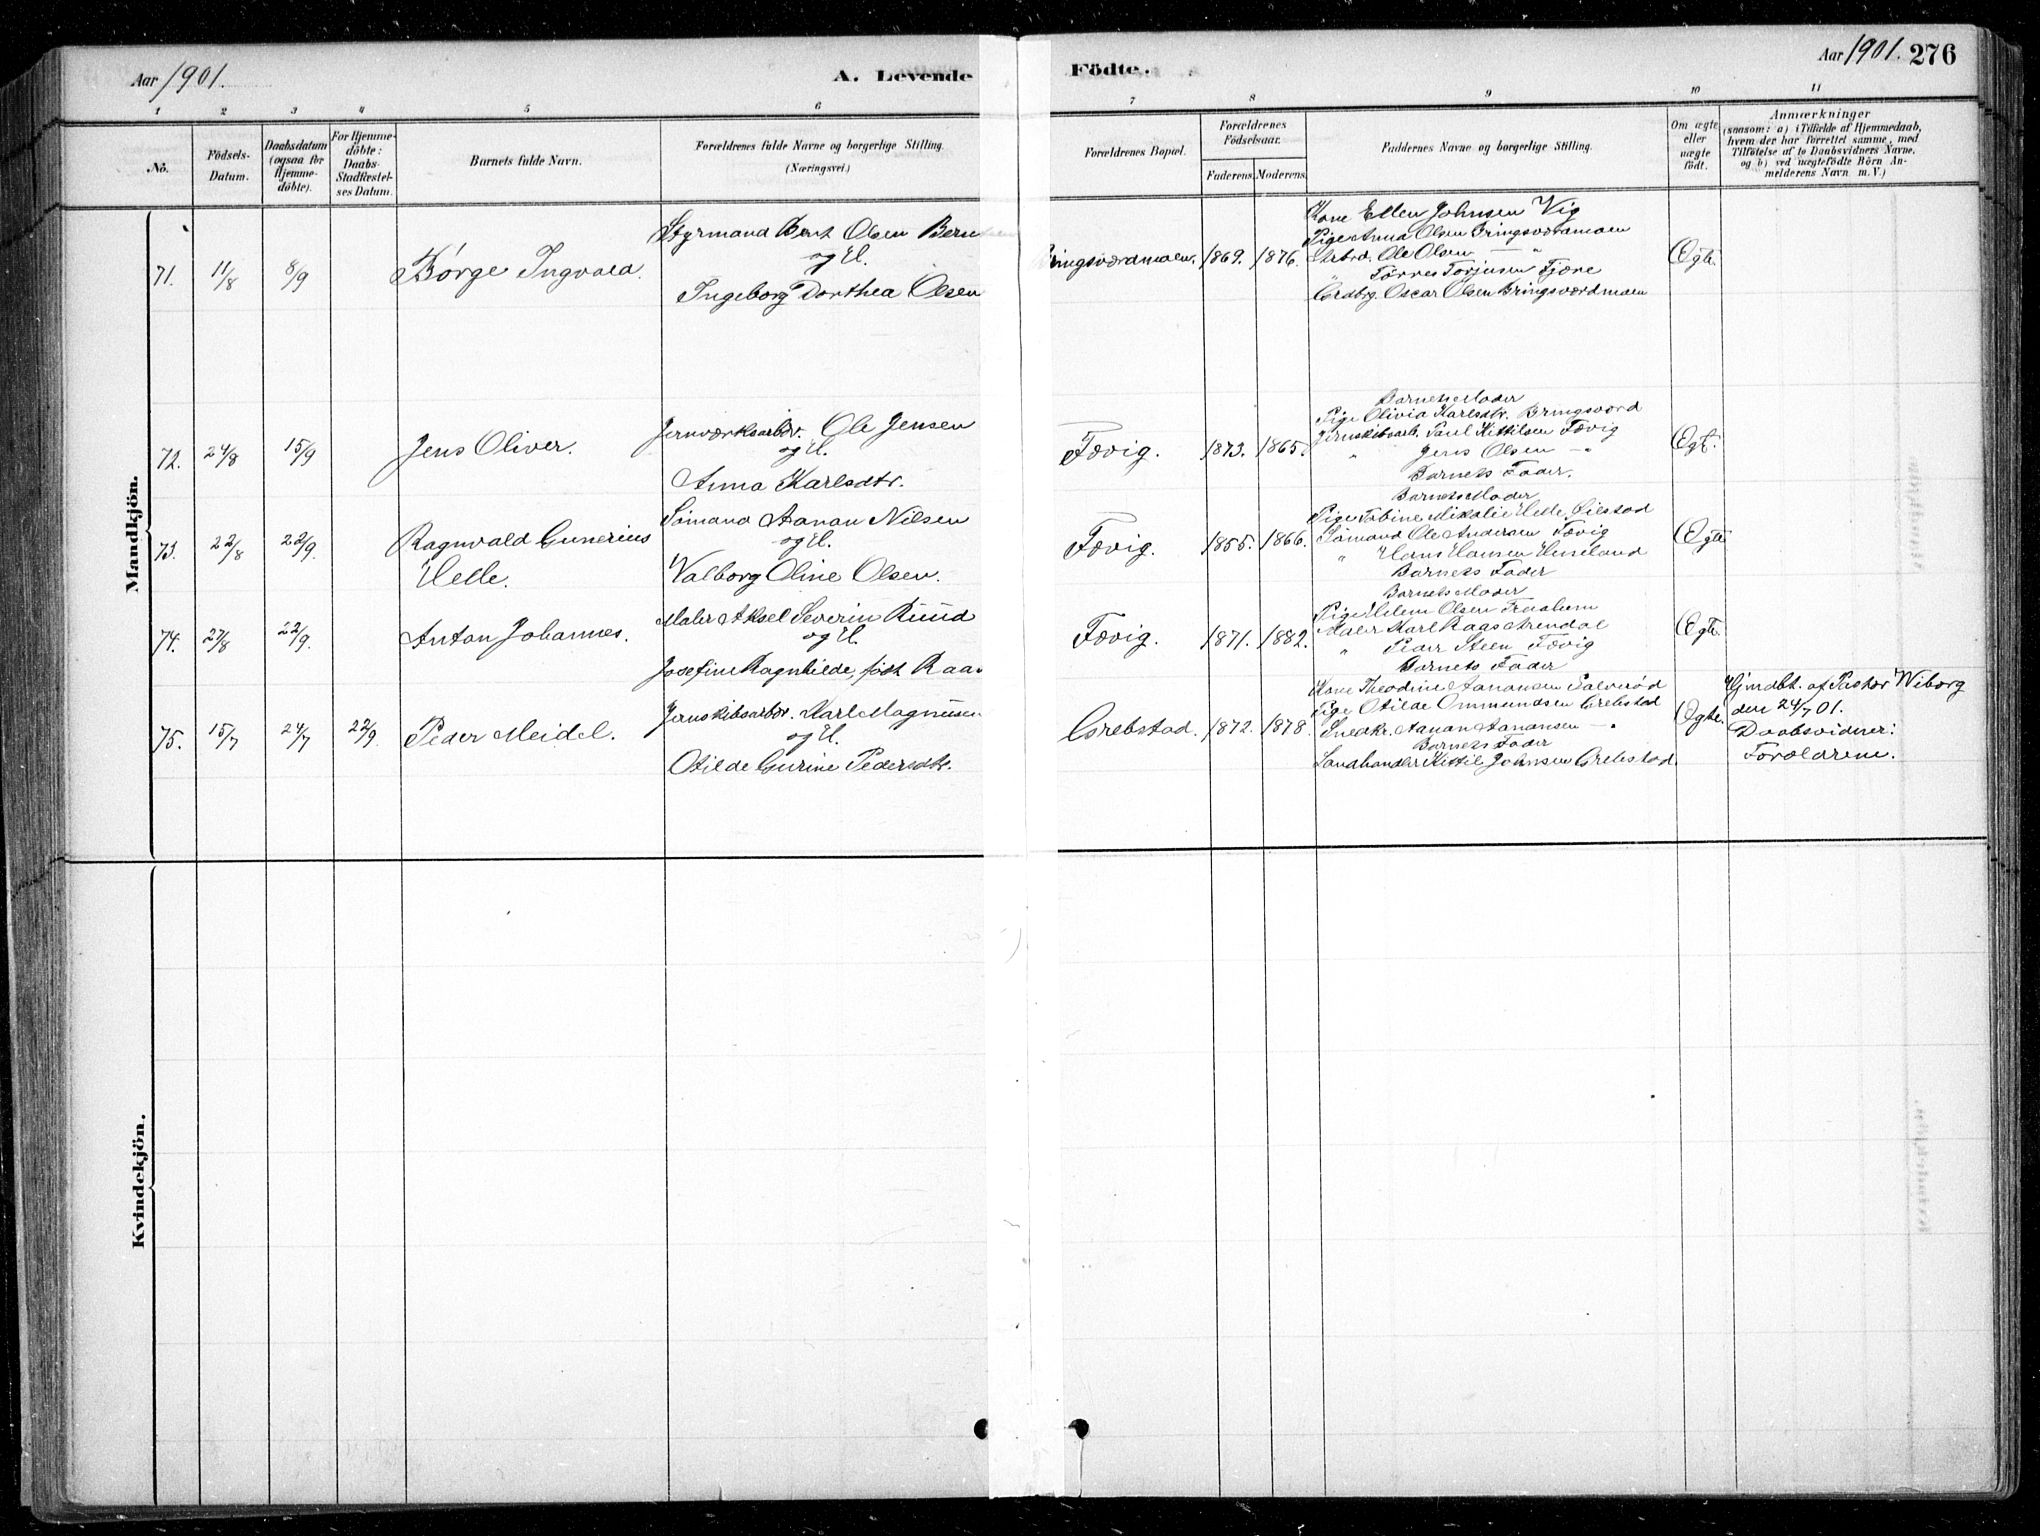 Aar 1901.
A. Levende Födte.
Aar 1901. 276
1 2 3 4 5 6 7 8 9 10 11
No.
Födsels-Datum.
Daabsdatum (ogsaa for Hjemme-döbte).
For Hjemme-döbte: Daabs-Stadfæstel-ses Datum.
Barnets fulde Navn.
Forældrenes fulde Navne og borgerlige Stilling. (Næringsvei.)
Forældrenes Bopæl.
Forældrenes Födselsaar.
Faderens. Moderens.
Faddernes Navne og borgerlige Stilling.
Om ægte eller uægte födt.
Anmærkninger
(saasom: a) i Tilfælde af Hjemmedaab,
hvem der har forrettet samme, med
Tilföielse af to Daabsvidners Navne,
og b) ved uægtefödte Börn An-
melderens Navn m. V.)
Mandkjön.
71. 11/8 8/9 Børge Ingvald.
Styrmand Bent Olsen
og H.
Ingeborg Dorthea Olsen
Bringsværdmoen. 1869. 1876.
Kone Ellen Johnsen Vig
Pige Anna Olsen Bringsværdmoen
Ole Olsen — "
" Tørres Torjusen Fjære
Oscar Olsen Bringsværdmoen
Ægte.
72. 24/8 15/9 Jens Oliver.
Jernværksarbdr. Ole Jensen
og H.
Anna Karlsdtr.
Fævig. 1873. 1865.
Barnets Moder
Pige Olivia Karlsdtr. Bringsværd
Jernskibsarb. Paul Kittilsen Fævig
" Jens Olsen — "
Barnets Fader.
Ægt.
73. 22/8 22/9 Ragnvald Gunerius
Helle.
Sömand Aanan Nilsen
og H.
Valborg Oline Olsen.
Fævig. 1855. 1866.
Barnets Moder
Pige Tobine Mikalie Helle, Öiestad
Sömand Ole Andersen Fævig
" Hans Hansen Hesseland
Barnets Fader
Ægte
74. 27/8 22/9. Anton Johannes.
Maler Aksel Severin Ruud
og H.
Josefine Ragnhilde, født Raa
Fævig. 1871. 1882.
Barnets Moder
Pige Helene Olsen
Maler Karl Raas Arendal
" Peder Steen Fævig
Barnets Fader
Ægte
75. 15/7 24/7 22/9. Peder Meidel.
Jernskibsarbdr. Karl Magnusen
og H.
Otilde Gurine Pedersdtr.
Grebstad. 1872. 1878.
Kone Theodine Aanonsen
Pige Otilde Ommundsen Grebstad
Snedkr. Aanon Aanonsen — "
Barnets Fader
Landhandler Kittil Johnsen Grebstad.
Ægte.
Hjmdbt. af Pastor Wiborg
den 24/7 01.
Daabsvidner:
Forældrene.
Kvindekjön.